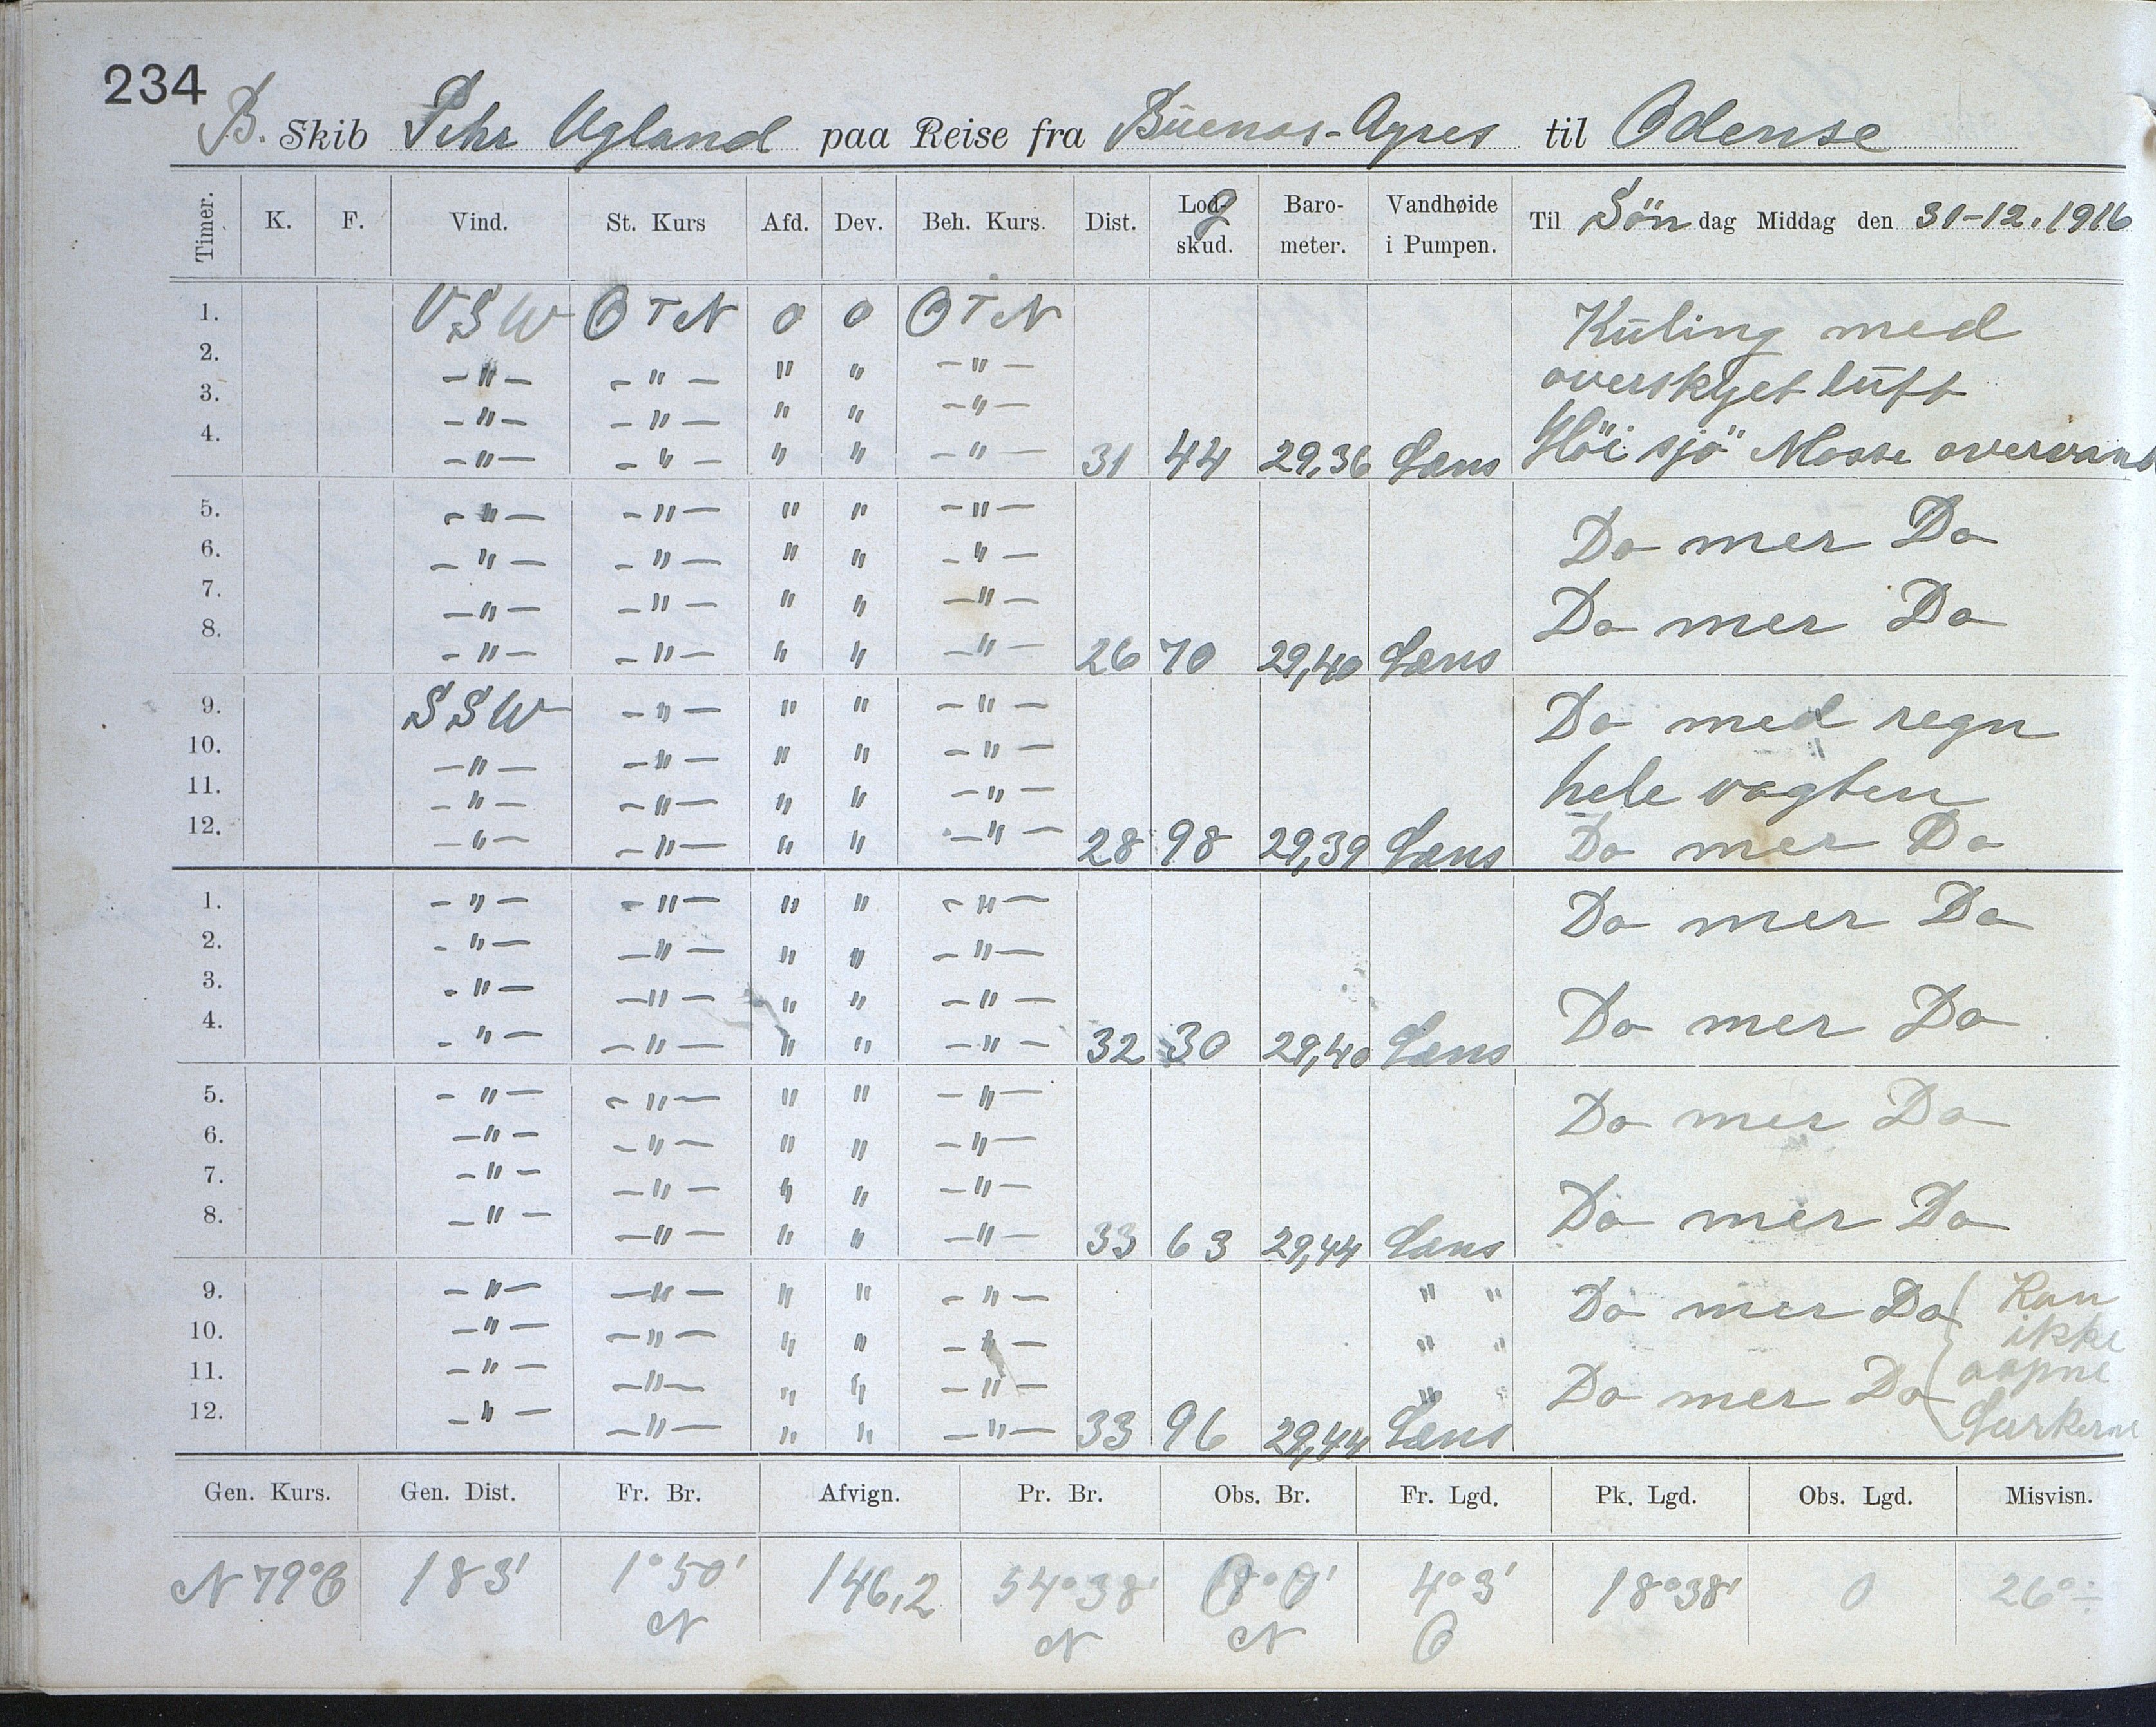 234
B. Skib Pehr Ugland paa Reise fra Buenos-Ayres til Odense
Timer. K. F. Vind. St. Kurs Afd. Dev. Beh. Kurs. Dist. Lodg skud. Baro-meter. Vandhøide i Pumpen. Til Søn dag Middag den 31-12.1916
1. VSW OTN 0 0 OTN Küling med
2. -"- -"- " " -"- overskyet lüft
3. -"- -"- " " -"-
4. -"- -"- " " -"- 31 44 29,36 Læns Höi sjö Masse overvand
5. -"- -"- " " -"- Do mer Do
6. -"- -"- " " -"-
7. -"- -"- " " -"- Do mer Do
8. -"- -"- " " -"- 26 70 29,40 Læns
9. SSW -"- " " -"- Do med regn
10. -"- -"- " " -"-
11. -"- -"- " " -"- hele vagten
12. -"- -"- " " -"- 28 98 29,39 Læns Do mer Do
1. -"- -"- " " -"- Do mer Do
2. -"- -"- " " -"-
3. -"- -"- " " -"-
4. -"- -"- " " -"- 32 30 29,40 Læns Do mer Do
5. -"- -"- " " -"- Do mer Do
6. -"- -"- " " -"-
7. -"- -"- " " -"-
8. -"- -"- " " -"- 33 63 29,44 Læns Do mer Do
9. -"- -"- " " -"- " " Do mer Do Kan
10. -"- -"- " " -"- " " ikke
11. -"- -"- " " -"- " " Do mer Do aapne
12. -"- -"- " " -"- 33 96 29,44 Læns Lurkerne
Gen. Kurs. Gen. Dist. Fr. Br. Afvign. Pr. Br. Obs. Br. Fr. Lgd. Pk. Lgd. Obs. Lgd. Misvisn.
N 79° O 183' 1°50' N 146,2 54°38' N 0°0' N 4°3' O 18°38' 0 26°÷